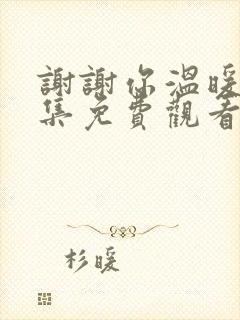 謝謝你溫暖
集免費觀看
杉暖